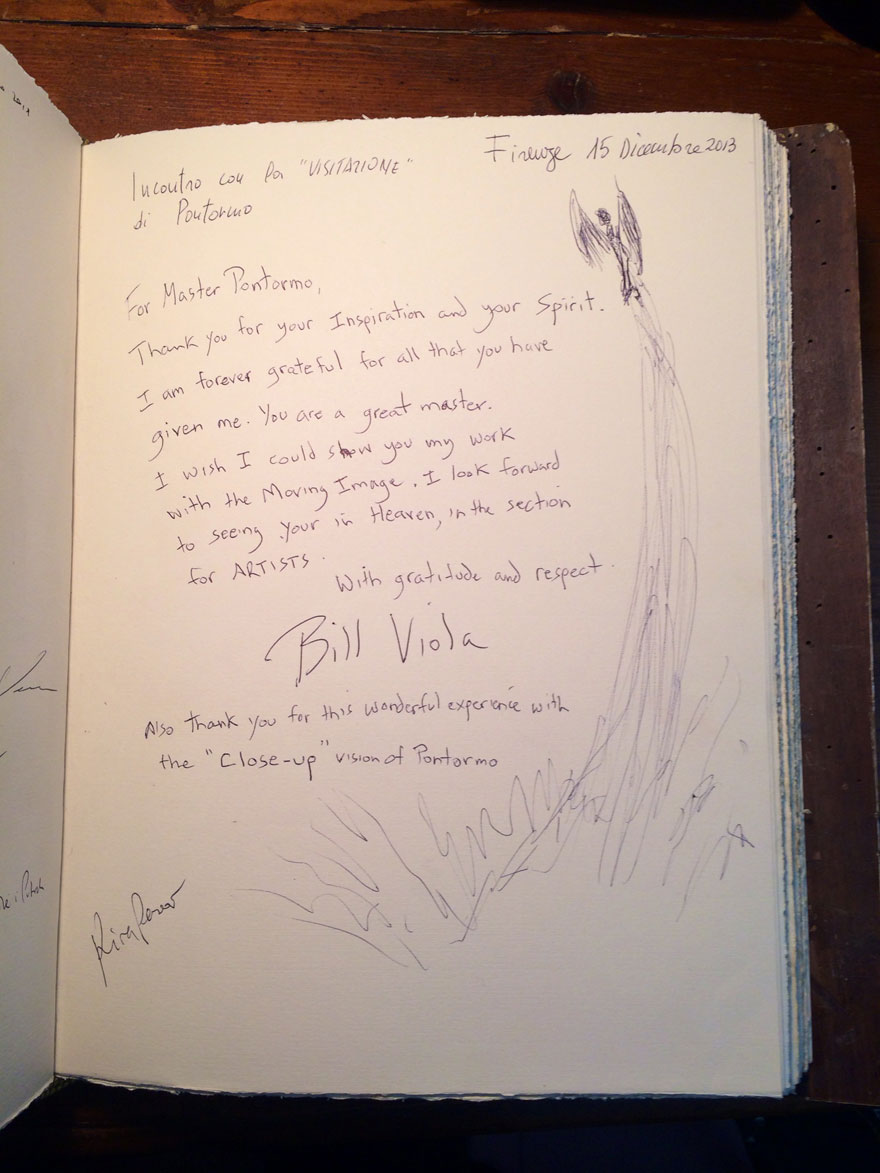 Firenze 15 Dicembre 2013
Incontro con la "VISITAZIONE"
di Pontormo
For Master Pontormo,
Thank you for your Inspiration and your Spirit.
I am forever grateful for all that you have
given me. You are a great master.
I wish I could show you my work
with the Moving Image. I look forward
to seeing your in Heaven, in the section
for ARTISTS.
With gratitude and respect.
Bill Viola
Also thank you for this wonderful experience with
the "Close-up" vision of Pontormo
Kira Perov